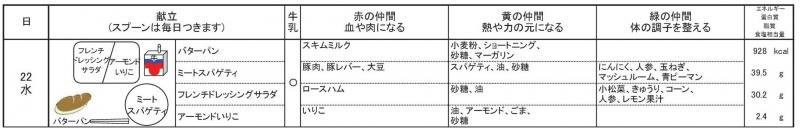 日
献立
(スプーンは毎日つきます)
牛乳
赤の仲間
血や肉になる
黄の仲間
熱や力の元になる
緑の仲間
体の調子を整える
エネルギー
蛋白質
脂質
食塩相当量
22
水
フレンチ
ドレッシング
サラダ
アーモンド
いりこ
ミート
スパゲティ
バターパン
バターパン
○
スキムミルク
小麦粉、ショートニング、
砂糖、マーガリン
928 kcal
ミートスパゲティ
豚肉、豚レバー、大豆
スパゲティ、油、砂糖
にんにく、人参、玉ねぎ、
マッシュルーム、青ピーマン
39.5 g
フレンチドレッシングサラダ
ロースハム
砂糖、油
小松菜、きゅうり、コーン、
人参、レモン果汁
30.2 g
アーモンドいりこ
いりこ
油、アーモンド、ごま、
砂糖
2.4 g